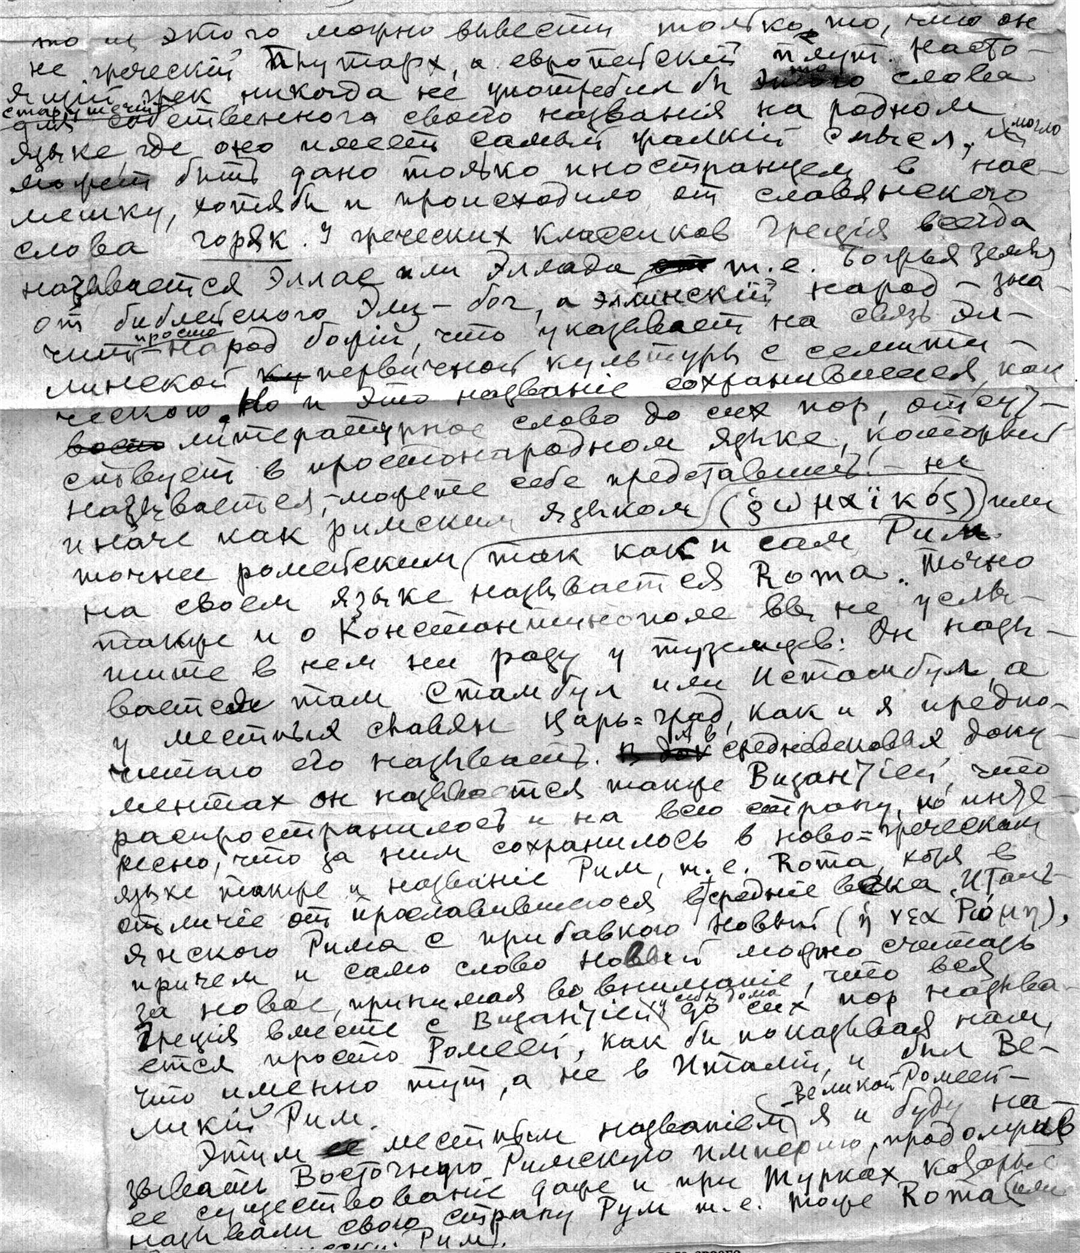 то из этого можно вывести только то, что он
не греческій Плутарх, а европейскій плут. Насто-
ящий грек никогда не употребил бы этого слова
для собственного своего названія на родном
языке, где оно имеет самый гранкій смысл, и могло
быть дано только иностранцем в нас-
мешку, хотя бы и происходило от славянского
слова горяк. У греческих классиков Греція всегда
называется Эллас или Эллада т.е. Божья земля
от библейского Эли - бог, а эллинскій народ - зна-
чит просто народ божій, что указывает на связь Эл-
линской первичной культуры с семити-
ческою. Но и это названіе сохранившееся, как
литературное слово до сих пор, отсут-
ствует в простонародном языке, который
называется, - можете себе представить! - не
иначе как римским языком (ῥωμαϊκός) или
точнее ромейским, так как и сам Рим
на своем языке называется Roma. Точно
также и о Константинополе вы не услы-
шите в нем ни разу у туземцев: Он назы-
вается там Стамбул или Истамбул, а
у местных славян Царь=град, как и я предпо-
читаю его называть. А в средневековых доку-
ментах он называется также Византіей, что
распространилось и на всю страну, но инте-
ресно, что за ним сохранилось в ново=греческом
языке также и названіе Рим, т.е. Roma, хотя в
отличіе от прославившегося в средніе века Италь-
янского Рима с прибавкою Новый (ἡ νεα Ρώμη),
причем и само слово новый можно считать
за новое, принимая во вниманіе, что вся
Греція вместе с Византіей у себя дома до сих пор называ-
ется просто Ромеей, как бы показывая нам,
что именно тут, а не в Италіи, и был Ве-
ликій Рим.
Этим местным названіем - Великой Ромеей -
я и буду на-
зывать Восточную Римскую империю, продолжив
ее существованіе даже и при Турках которые
называли свою страну Рум т.е. тоже Roma (или
Рим).